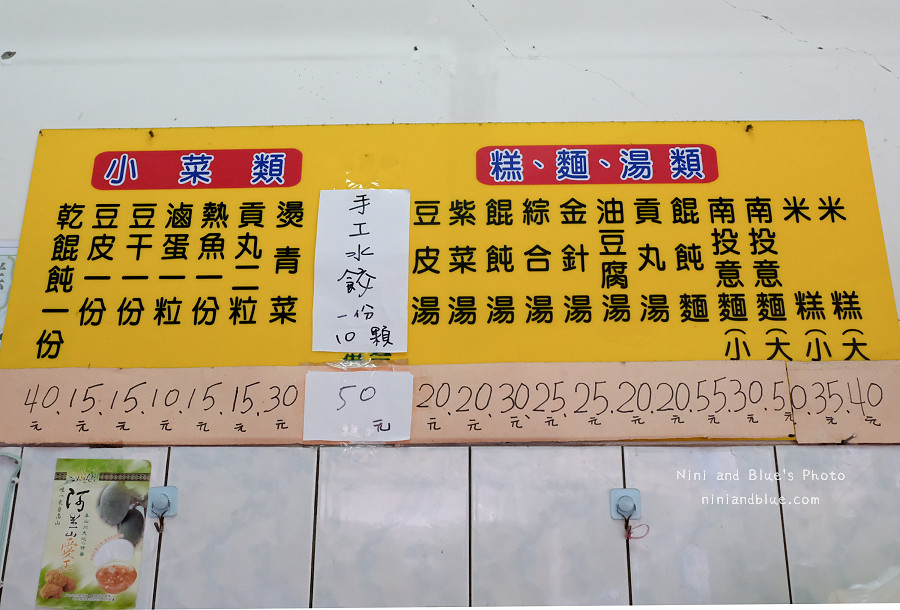 小菜類
乾餛飩一份
豆皮一份
豆干一份
滷蛋一粒
熱魚一份
貢丸二粒
燙青菜
手工水餃
一份
10顆
糕、麵、湯類
豆皮湯
紫菜湯
餛飩湯
綜合湯
金針湯
油豆腐湯
貢丸湯
餛飩麵
南投意麵(小
南投意麵(大
米糕(小
米糕(大
40元
15元
15元
10元
15元
15元
30元
50元
20元
20元
30元
25元
25元
20元
20元
55元
30元
50元
35元
40元
阿里山愛玉
Nini and Blue's Photo
niniandblue.com